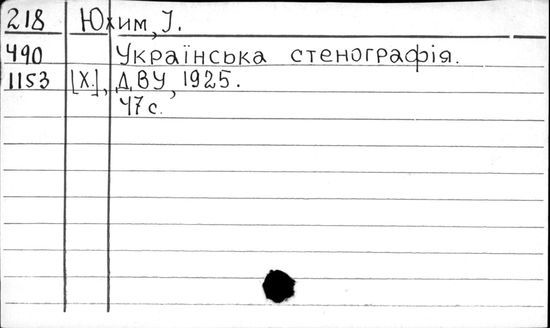 218 Юхим, І.
490 Українська стенографія.
1153 [Х.], ДВУ, 1925.
47 с.